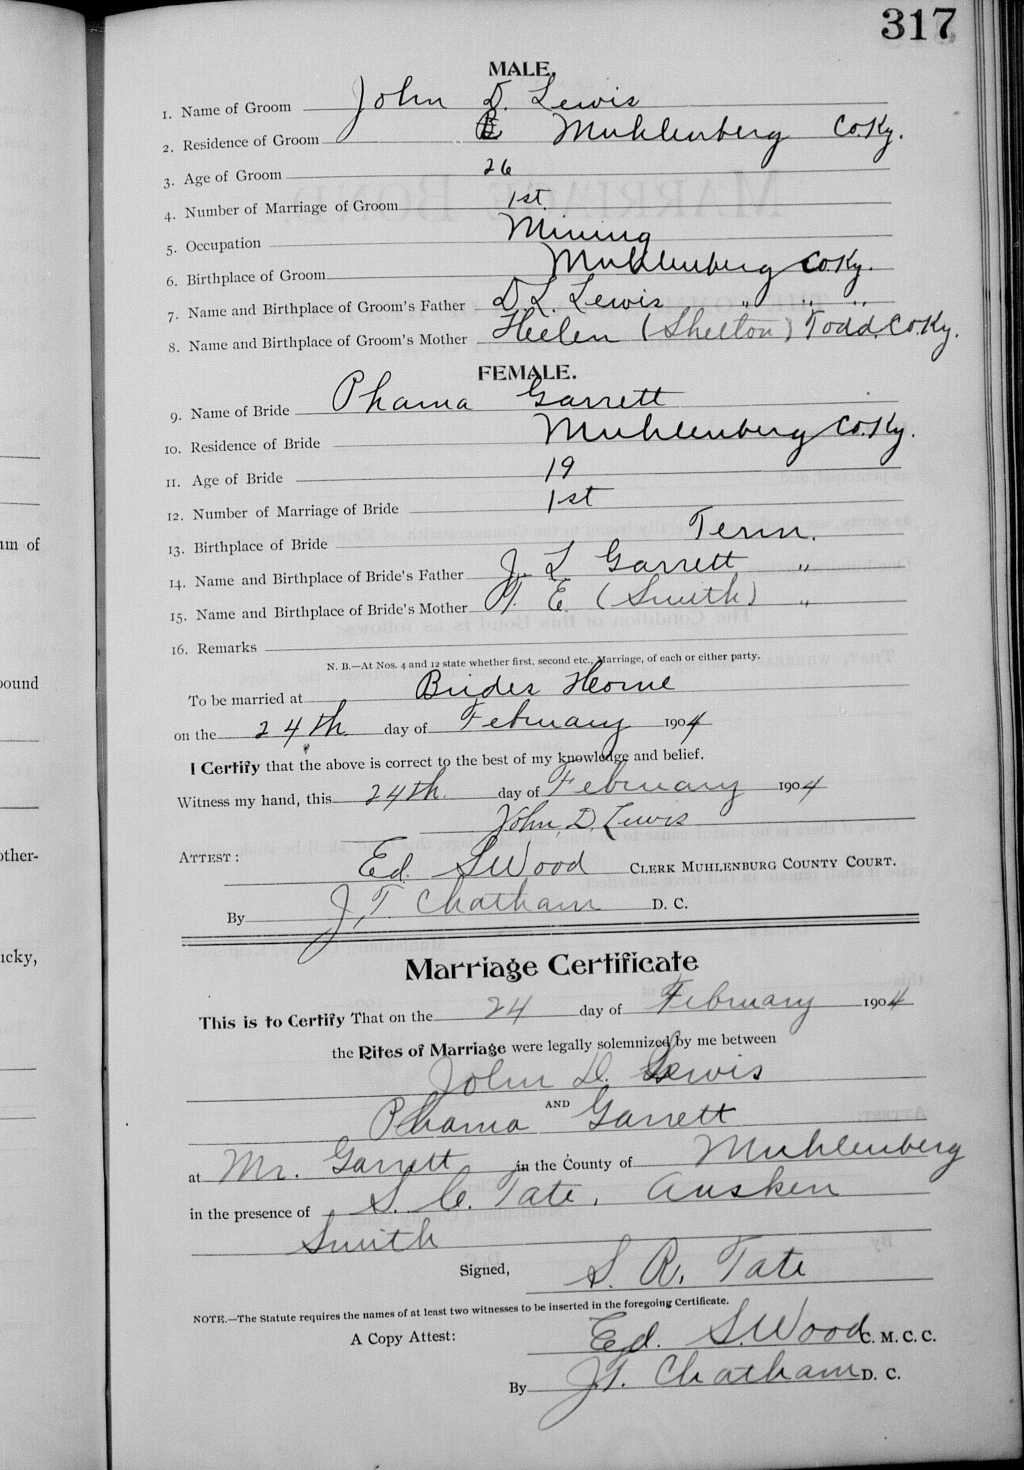 317
MALE.
1. Name of Groom John D. Lewis
2. Residence of Groom Muhlenberg Co. Ky.
3. Age of Groom 26
4. Number of Marriage of Groom 1st.
5. Occupation Mining
6. Birthplace of Groom Muhlenberg Co. Ky.
7. Name and Birthplace of Groom's Father D. L. Lewis " " "
8. Name and Birthplace of Groom's Mother Heelen (Shelton) Todd, Co. Ky.
FEMALE.
9. Name of Bride Phama Garrett
10. Residence of Bride Muhlenberg Co. Ky.
11. Age of Bride 19
12. Number of Marriage of Bride 1st
13. Birthplace of Bride Tenn.
14. Name and Birthplace of Bride's Father J. L Garrett "
15. Name and Birthplace of Bride's Mother T. E. (Smith) "
16. Remarks
N. B.—At Nos. 4 and 12 state whether first, second etc., Marriage, of each or either party.
To be married at Brides Home
on the 24th. day of February 1904
I Certify that the above is correct to the best of my knowledge and belief.
Witness my hand, this 24th. day of February 1904
John, D, Lewis
ATTEST: Ed. S. Wood CLERK MUHLENBURG COUNTY COURT.
By J. T. Chatham D. C.
Marriage Certificate
This is to Certify That on the 24 day of February 1904
the Rites of Marriage were legally solemnized by me between
John D. Lewis
AND
Phama Garrett
at Mr. Garrett in the County of Muhlenberg
in the presence of S. C. Tate, Ausken
Smith
Signed, S. R. Tate
NOTE.—The Statute requires the names of at least two witnesses to be inserted in the foregoing Certificate.
A Copy Attest: Ed. S. Wood C. M. C. C.
By J. T. Chatham D. C.
um of
ound
other-
ucky,